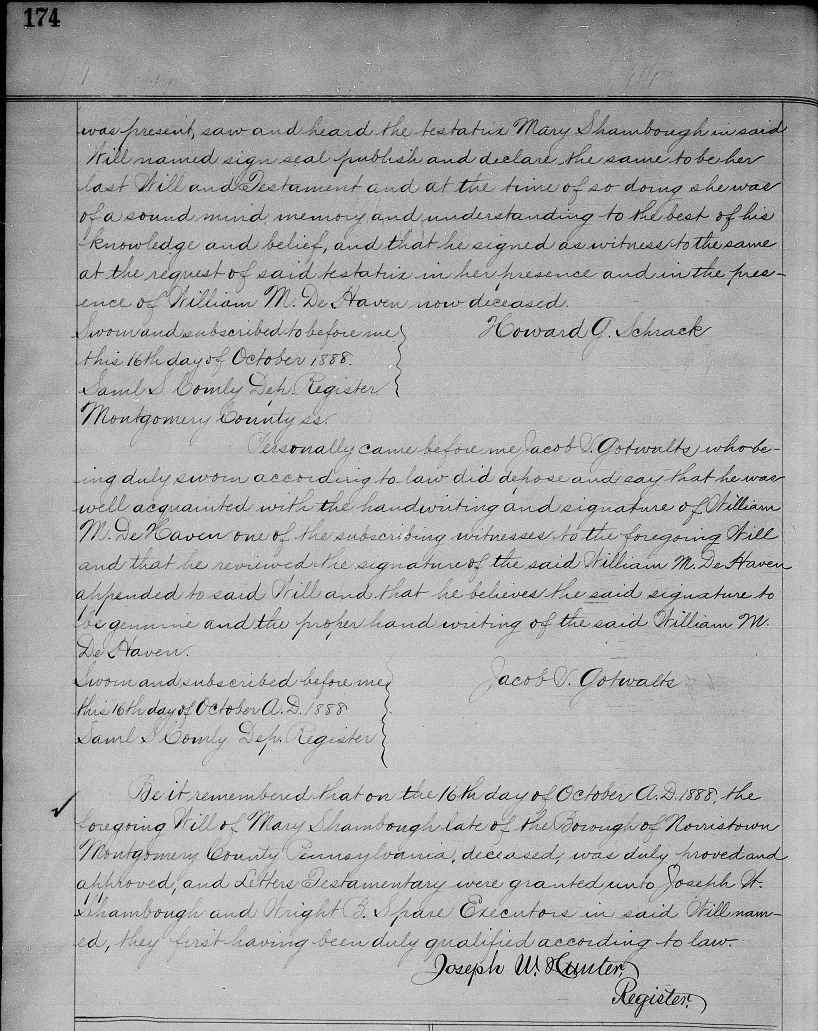 174
was present, saw and heard the testatrix Mary Shambough in said
Will named sign seal publish and declare the same to be her
last Will and Testament and at the time of so doing she was
of a sound mind memory and understanding to the best of his
knowledge and belief, and that he signed as witness to the same
at the request of said testatrix in her presence and in the pres-
ence of William M. De Haven now deceased.
Sworn and subscribed to before me
Howard G. Schrack
this 16th day of October 1888.
Saml S Comly Dep. Register
Montgomery County ss.
Personally came before me Jacob V. Gotwalts who be-
ing duly sworn according to law did depose and say that he was
well acquainted with the handwriting and signature of William
M. De Haven one of the subscribing witnesses to the foregoing Will
and that he reviewed the signature of the said William M. De Haven
appended to said Will and that he believes the said signature to
be genuine and the proper hand writing of the said William M.
De Haven.
Sworn and subscribed before me
Jacob V. Gotwalts
this 16th day of October A.D. 1888
Saml S Comly Dep. Register
Be it remembered that on the 16th day of October A.D. 1888, the
foregoing Will of Mary Shambough late of the Borough of Norristown
Montgomery County Pennsylvania, deceased, was duly proved and
approved, and Letters Testamentary were granted unto Joseph H.
Shambough and Wright Z. Spare Executors in said Will nam-
ed, they first having been duly qualified according to law.
Joseph W. Hunter,
Register.